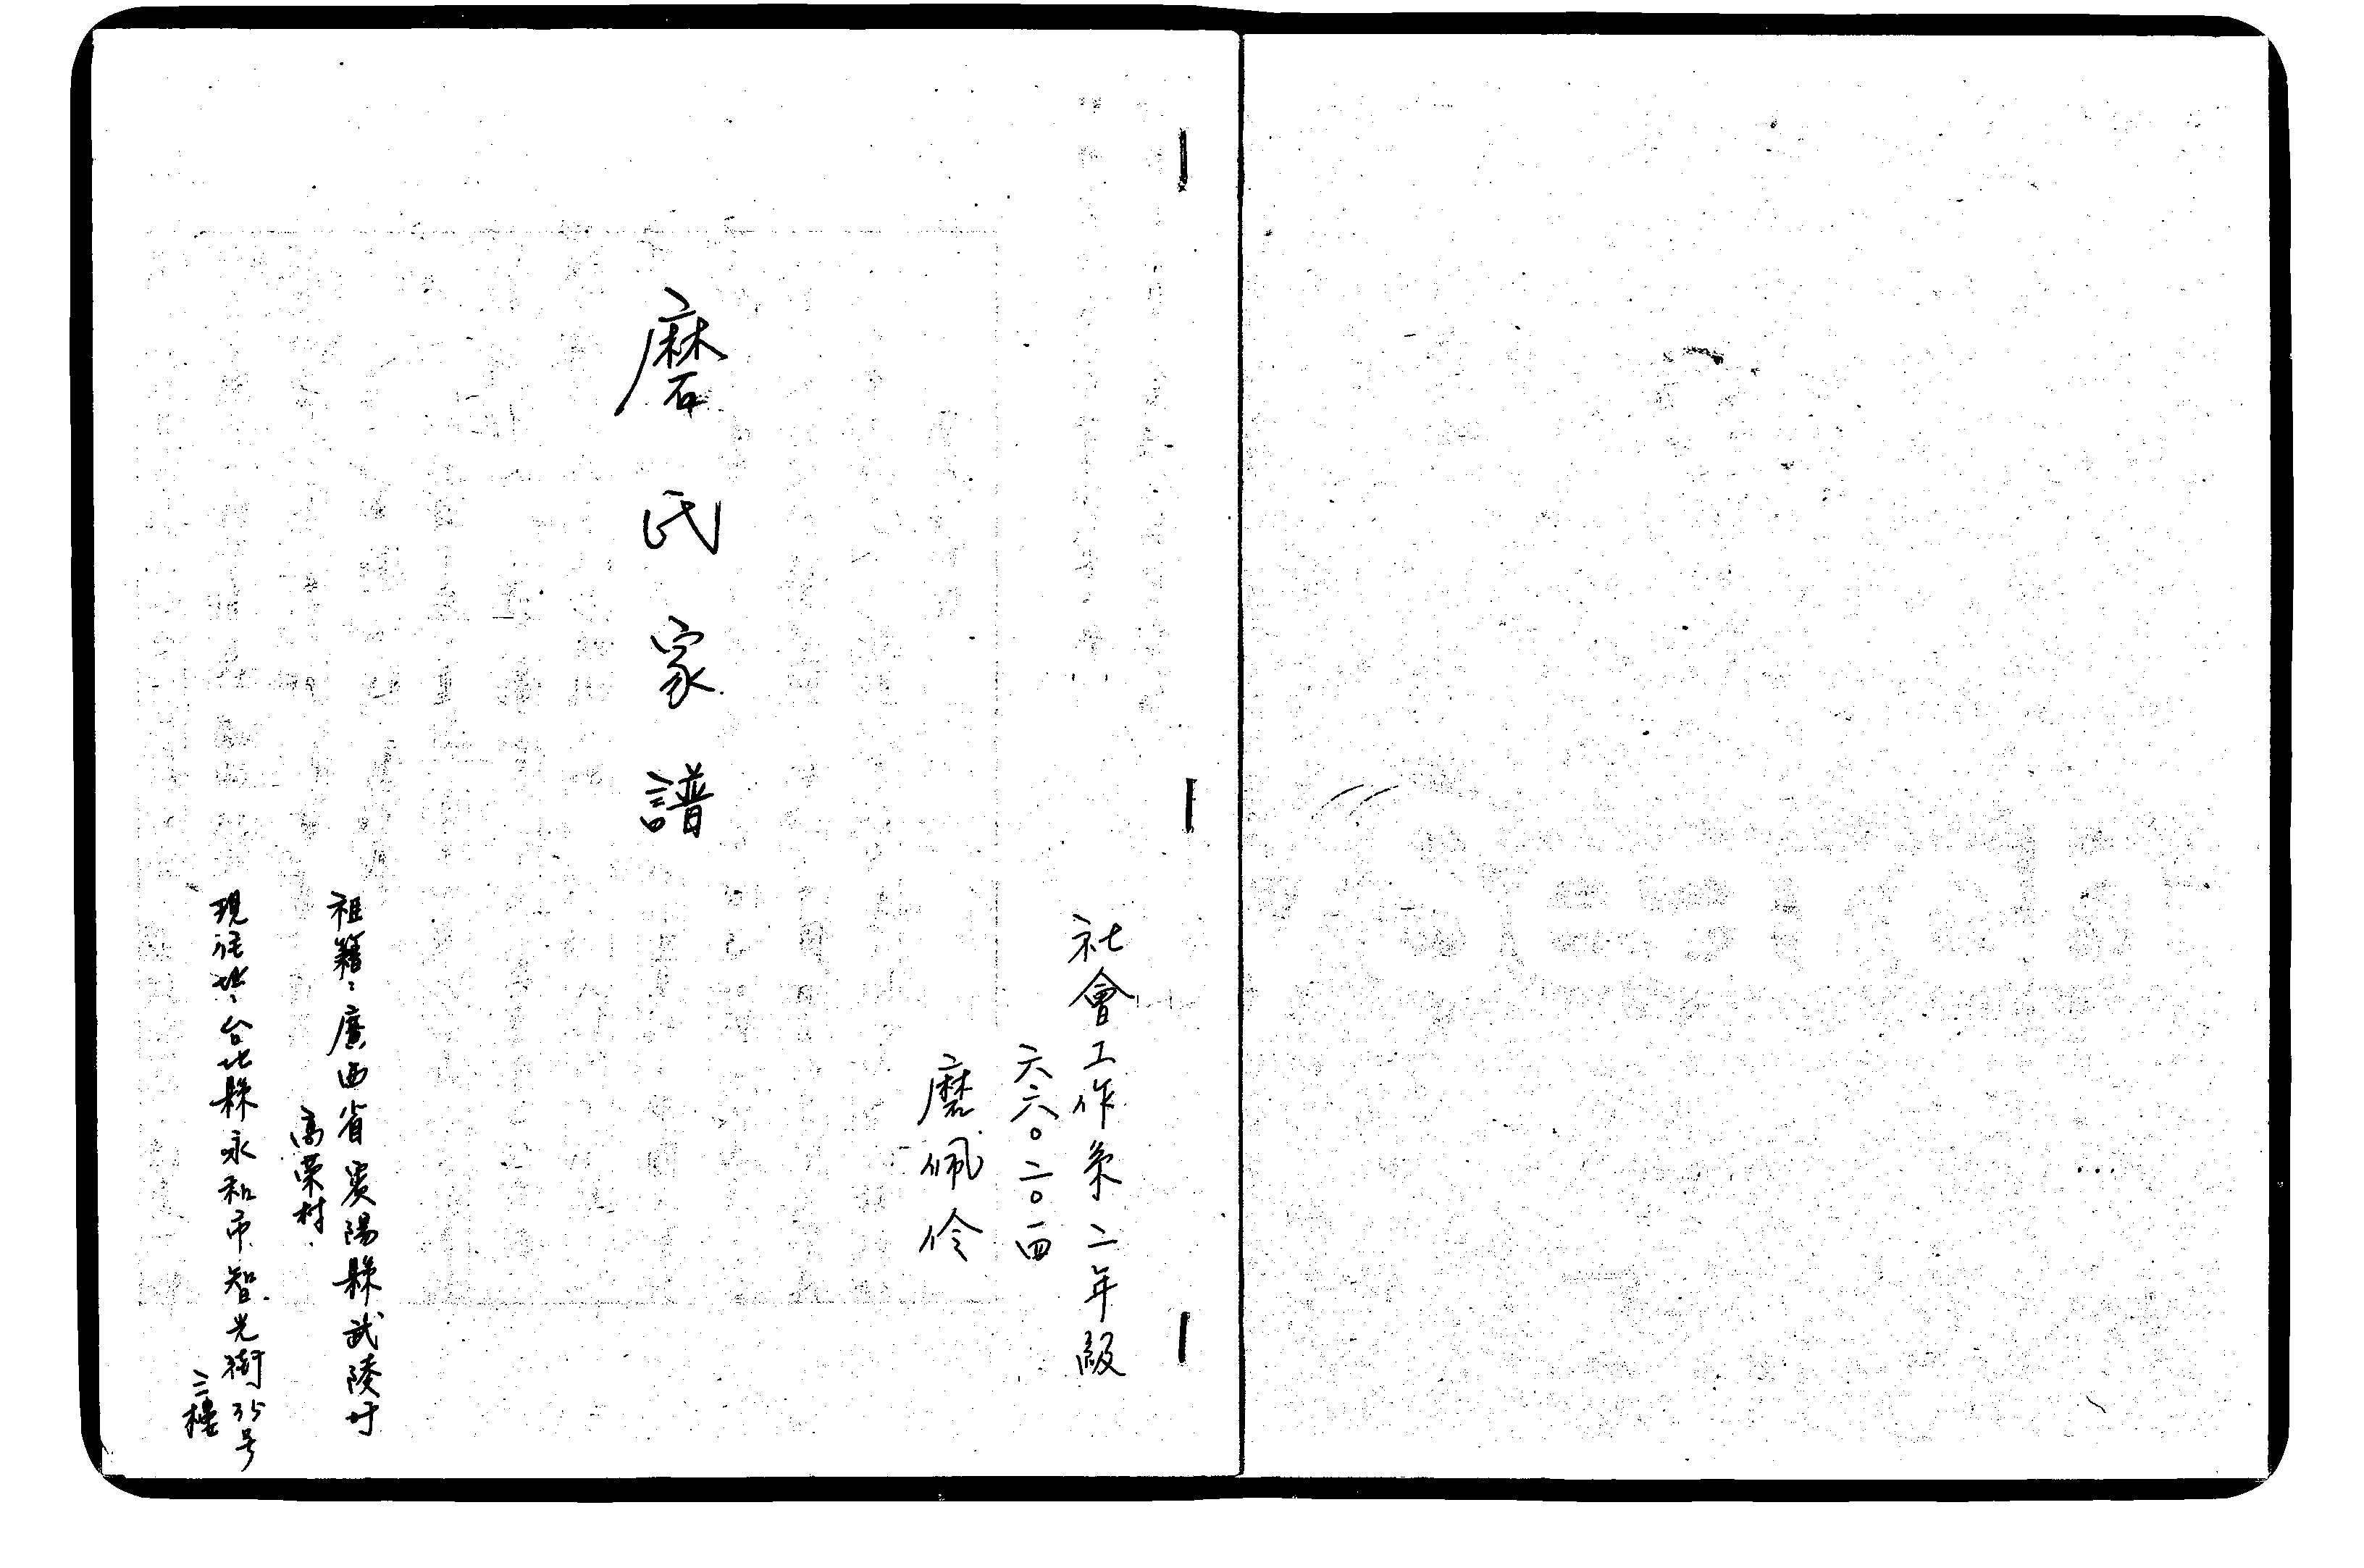 社會工作系二年級
六六〇二〇一四
磨佩伶
磨氏家譜
祖籍：廣西省賓陽縣武陵圩
高榮村
現住址：台北縣永和市智光街35号
三樓